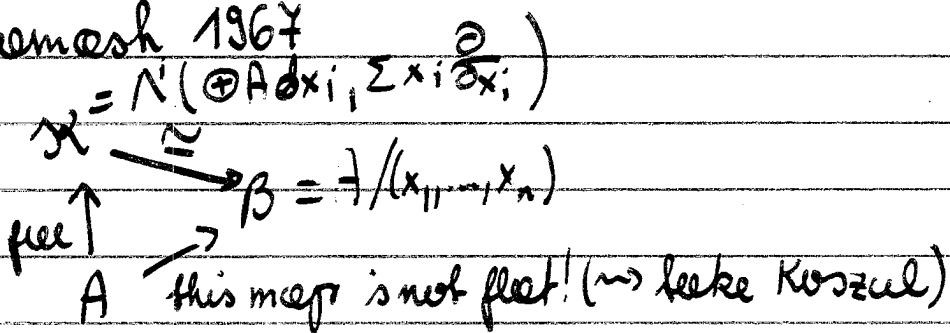 1967
= Λ˙(⊕A dxᵢ, Σ xᵢ ∂/∂xᵢ)
K ≃
B = A/(x₁,...,xₙ)
free
A this map is not flat! (⇝ take Koszul)